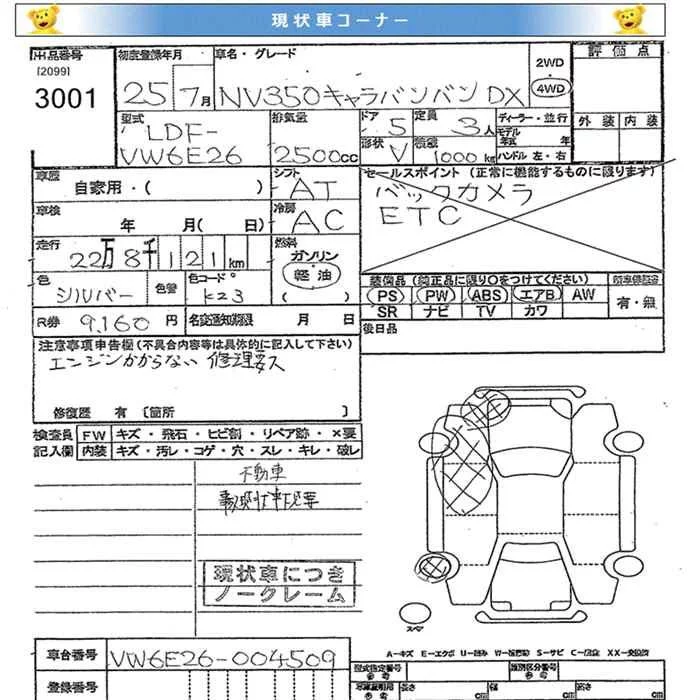 現状車コーナー
出品番号
[2099]
3001
初度登録年月
25 7月
車名・グレード
NV350キャラバンバン DX
2WD
4WD
評価点
外装 内装
型式
LDF-
VW6E26
排気量
2500cc
ドア 5
定員 3人
形状 V
積載 1000kg
ディーラー・並行
モデル
年式 年
ハンドル 左・右
車歴
自家用・( )
シフト
AT
セールスポイント (正常に機能するものに限ります)
バックカメラ
ETC
車検
年 月( 日)
冷房
AC
走行
22万8千121km
燃料
ガソリン
軽油
( )
色
シルバー
色替
色コード
K23
装備品 (純正品に限り○をつけてください)
PS PW ABS エアB AW
SR ナビ TV カワ
有・無
R券 9,160円
名変通知期限 月 日
後日品
注意事項申告欄(不具合内容等は具体的に記入して下さい)
エンジンかからない 修理要ス
修復歴 有 [箇所 ]
検査員
記入欄
FW キズ・飛石・ヒビ割・リペア跡・×要
内装 キズ・汚レ・コゲ・穴・スレ・キレ・破レ
不動車
現状車につき
ノークレーム
スペア
A-キズ E-エクボ U-凹み W-波打ち S-サビ C-腐食 XX-交換済
車台番号 VW6E26-004509
登録番号
型式指定番号
類別区分番号
長さ cm
幅 cm
高さ cm